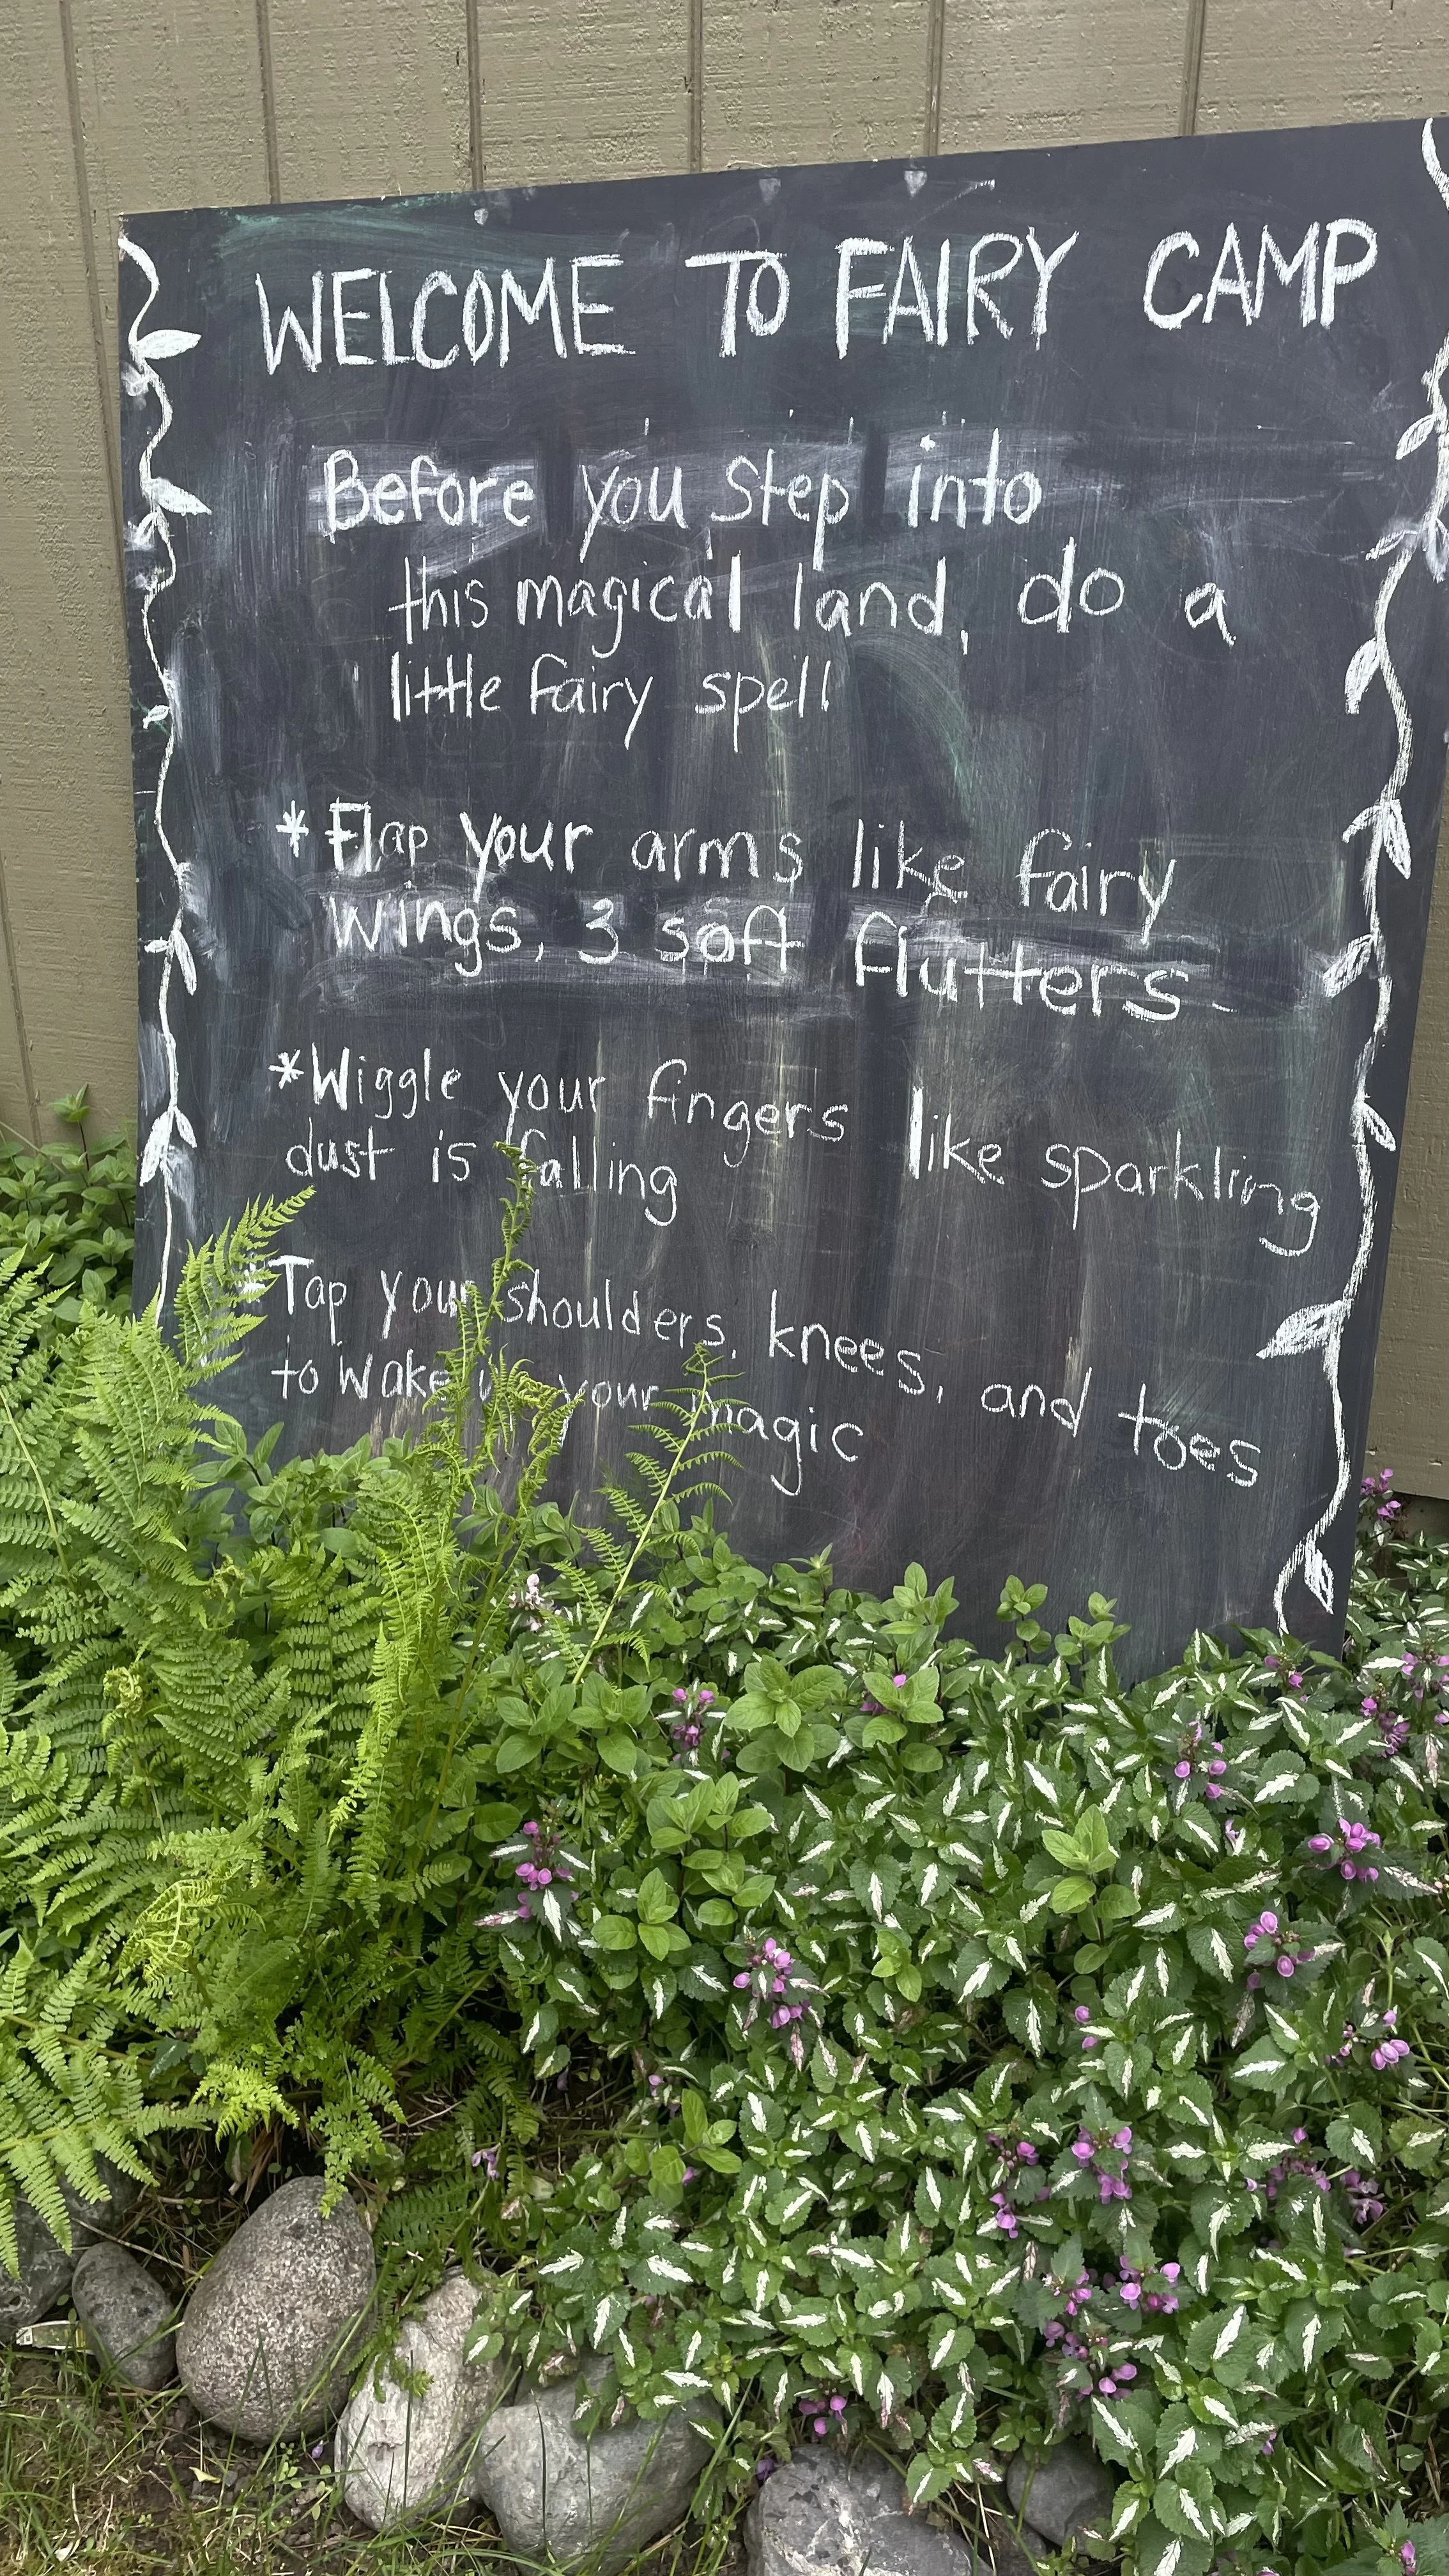 WELCOME TO FAIRY CAMP
Before you step into
this magical land, do a
little fairy spell
* Flap your arms like fairy
wings, 3 soft flutters
* Wiggle your fingers like sparkling
dust is falling
* Tap your shoulders, knees, and toes
to wake up your magic